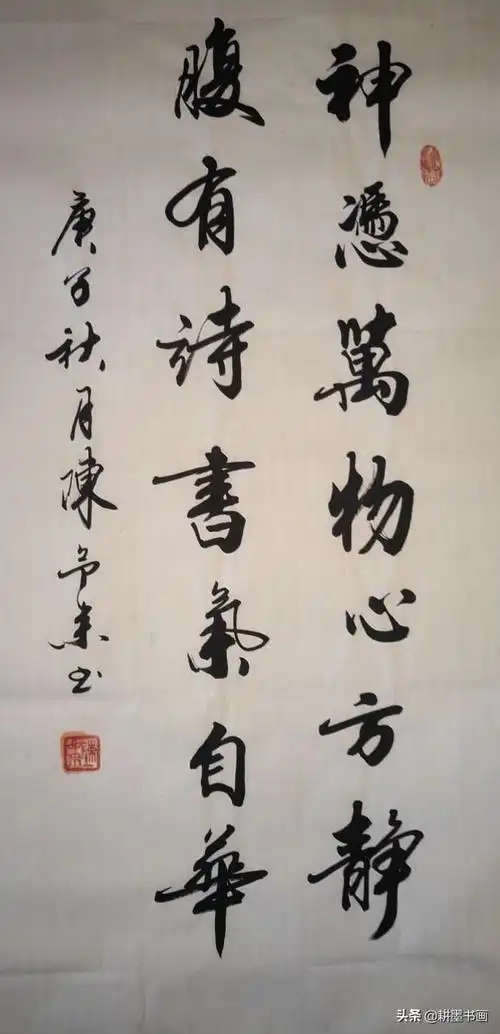 神憑萬物心方静
腹有詩書氣自華
庚子秋月陳予
头条 @耕墨书画